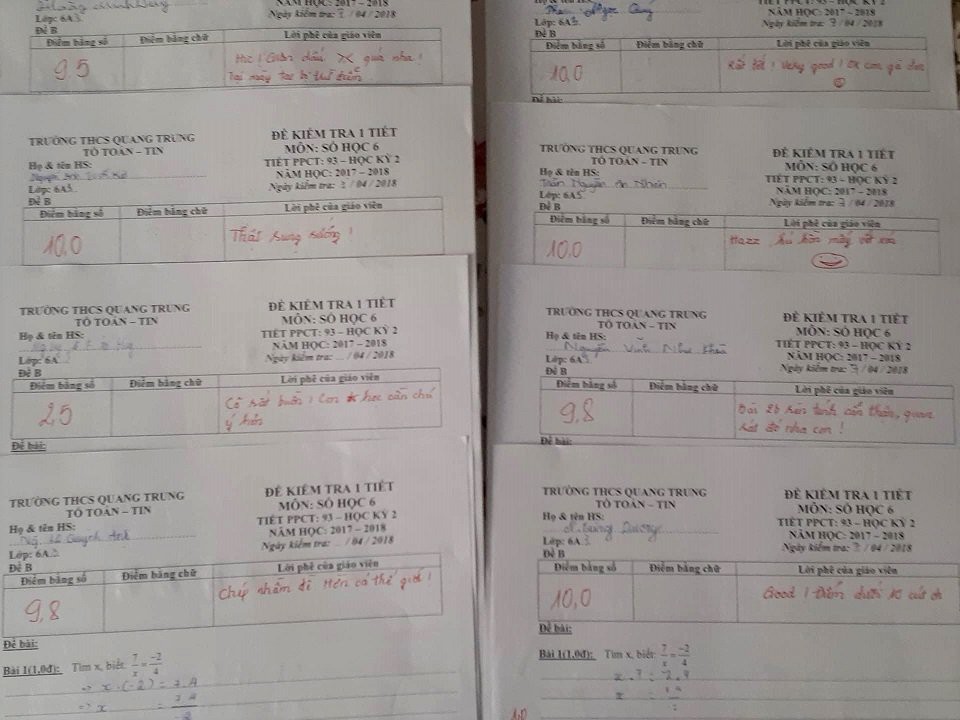 Lớp: 6A3
NĂM HỌC: 2017 - 2018
Ngày kiểm tra: 7 / 04 / 2018
Đề B
Điểm bằng số Điểm bằng chữ Lời phê của giáo viên
9,5 dấu X quá nha!
Tại mày ta bị trừ điểm
TRƯỜNG THCS QUANG TRUNG
TỔ TOÁN – TIN
ĐỀ KIỂM TRA 1 TIẾT
MÔN: SỐ HỌC 6
TIẾT PPCT: 93 – HỌC KỲ 2
NĂM HỌC: 2017 – 2018
Ngày kiểm tra: 7 / 04 / 2018
Họ & tên HS:
Lớp: 6A3
Đề B
Điểm bằng số Điểm bằng chữ Lời phê của giáo viên
10,0 Thật sung sướng!
TRƯỜNG THCS QUANG TRUNG
TỔ TOÁN – TIN
ĐỀ KIỂM TRA 1 TIẾT
MÔN: SỐ HỌC 6
TIẾT PPCT: 93 – HỌC KỲ 2
NĂM HỌC: 2017 – 2018
Ngày kiểm tra: ... / 04 / 2018
Họ & tên HS:
Lớp: 6A
Đề B
Điểm bằng số Điểm bằng chữ Lời phê của giáo viên
2,5 Cô rất buồn! Con học cần chú
ý hơn
Đề bài:
TRƯỜNG THCS QUANG TRUNG
TỔ TOÁN – TIN
ĐỀ KIỂM TRA 1 TIẾT
MÔN: SỐ HỌC 6
TIẾT PPCT: 93 – HỌC KỲ 2
NĂM HỌC: 2017 – 2018
Ngày kiểm tra: ... / 04 / 2018
Họ & tên HS: Quỳnh Anh
Lớp: 6A
Đề B
Điểm bằng số Điểm bằng chữ Lời phê của giáo viên
9,8 Chép nhầm đề Hên cả thế giới!
Đề bài:
Bài 1(1,0đ): Tìm x, biết: 7/x = -2/4
=> x.(-2) = 7.4
=> x = 7.4
Ngọc
Lớp: 6A3
TIẾT PPCT: 93 – HỌC KỲ 2
NĂM HỌC: 2017 – 2018
Ngày kiểm tra: 7 / 04 / 2018
Đề B
Điểm bằng số Điểm bằng chữ Lời phê của giáo viên
10,0 Rất tốt! Very good! OK con gà đen
Đề bài:
TRƯỜNG THCS QUANG TRUNG
TỔ TOÁN – TIN
ĐỀ KIỂM TRA 1 TIẾT
MÔN: SỐ HỌC 6
TIẾT PPCT: 93 – HỌC KỲ 2
NĂM HỌC: 2017 – 2018
Ngày kiểm tra: 7 / 04 / 2018
Họ & tên HS: Trần Nguyễn An Nhiên
Lớp: 6A3
Đề B
Điểm bằng số Điểm bằng chữ Lời phê của giáo viên
10,0 Hazz, hú hồn mấy vết xóa
TRƯỜNG THCS QUANG TRUNG
TỔ TOÁN – TIN
ĐỀ KIỂM TRA 1 TIẾT
MÔN: SỐ HỌC 6
TIẾT PPCT: 93 – HỌC KỲ 2
NĂM HỌC: 2017 – 2018
Ngày kiểm tra: 7 / 04 / 2018
Họ & tên HS: Nguyễn Vĩnh Như
Lớp: 6A3
Đề B
Điểm bằng số Điểm bằng chữ Lời phê của giáo viên
9,8 Bài 2b nên tính cẩn thận, quan
sát đề nha con!
Đề bài:
TRƯỜNG THCS QUANG TRUNG
TỔ TOÁN – TIN
ĐỀ KIỂM TRA 1 TIẾT
MÔN: SỐ HỌC 6
TIẾT PPCT: 93 – HỌC KỲ 2
NĂM HỌC: 2017 – 2018
Ngày kiểm tra: 7 / 04 / 2018
Họ & tên HS:
Lớp: 6A3
Đề B
Điểm bằng số Điểm bằng chữ Lời phê của giáo viên
10,0 Good! Điểm dưới 10 cút đi
Đề bài:
Bài 1(1,0đ): Tìm x, biết: 7/x = -2/4
1,0